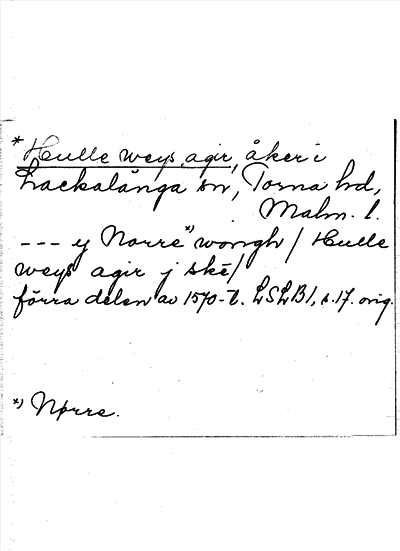 * Hulle weys agir, åker i
Lackalånga sn, Torna hd,
Malm. l.
--- y Norre *) wongh / Hulle
weys agir j skē/
förra delen av 1570-t. LSLB1, s.17. orig.
*) Nørre.